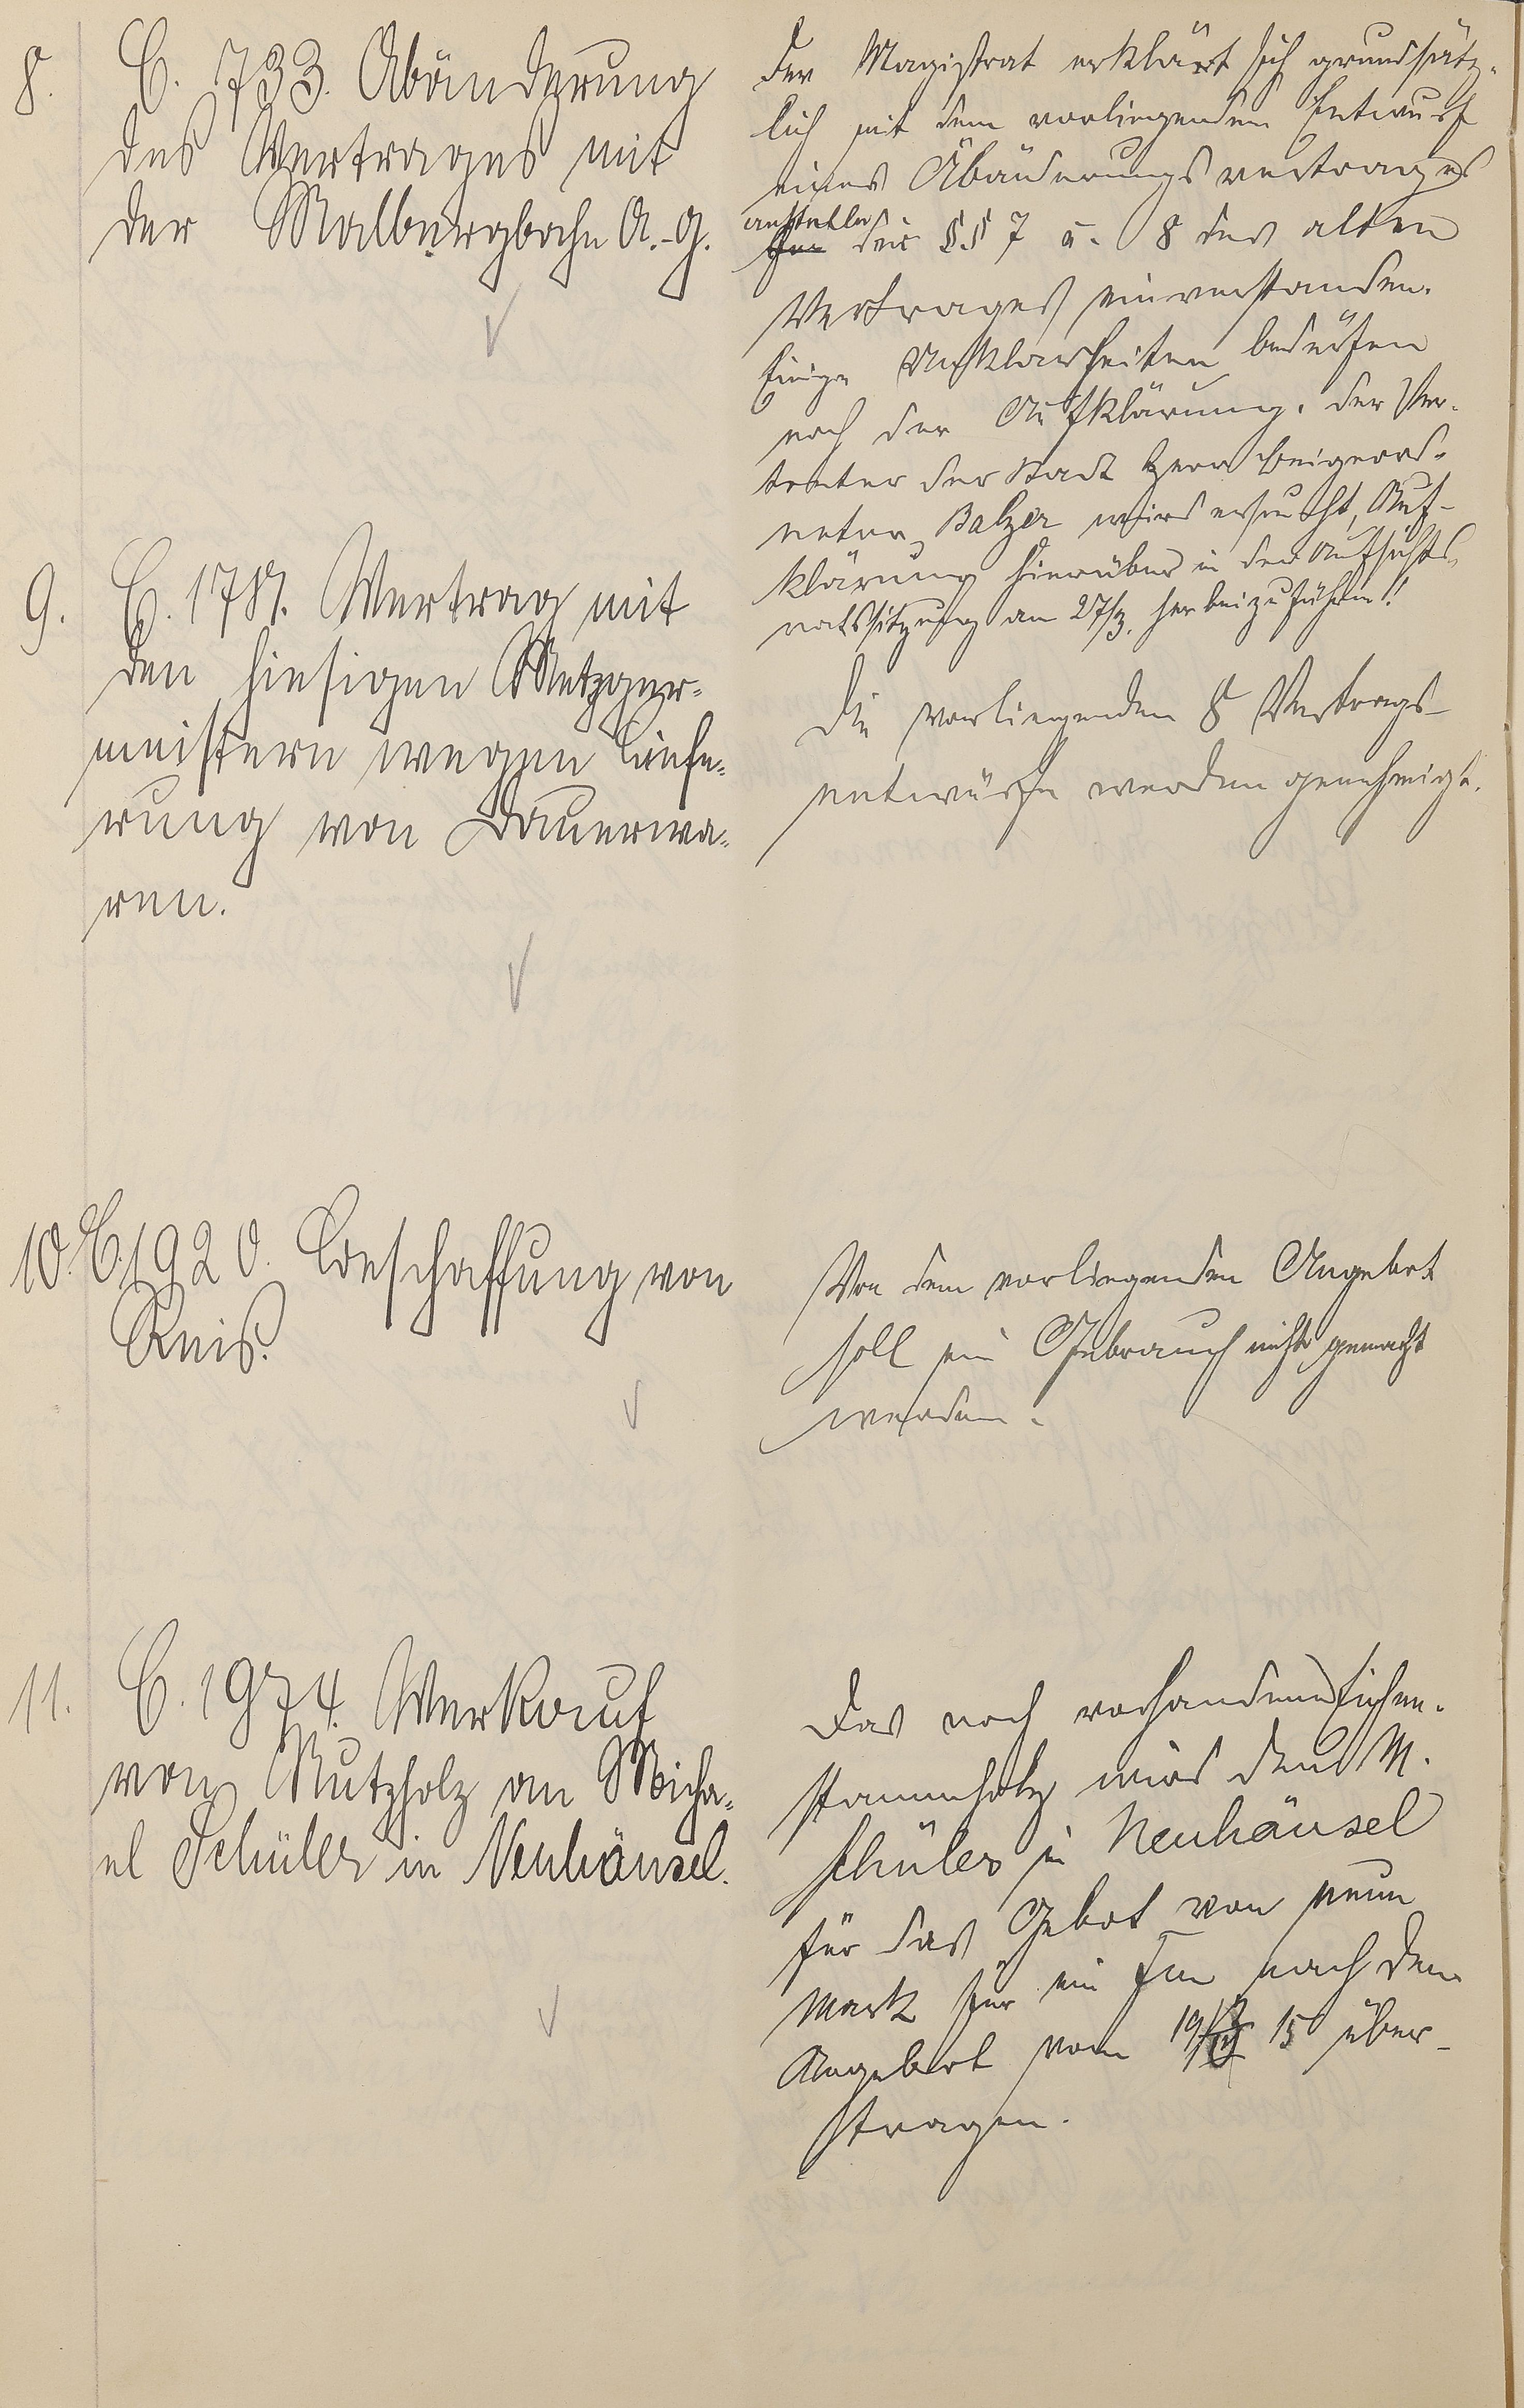 8. C. 733. Abänderung
des Vertrages mit
der Malbergbahn A.-G.
Der Magistrat erklärt sich grundsätz-
lich mit dem vorliegenden Entwurf
eines Abänderungsvertrages
anstelle
für der §§ 7 u. 8 des alten
Vertrages einverstanden.
Einige Unklarheiten bedürfen
noch der Aufklärung. Der Ver-
treter der Stadt Herr Beigeord-
neter Balzer wird ersucht, Auf-
klärung hierüber in der Aufsichts-
ratssitzung am 27/3. herbeizuführen!
9. C. 1781. Vertrag mit
den hiesigen Metzger-
meistern wegen Liefe-
rung von Dauerwa-
ren.
Die vorliegenden 8 Vertrags-
entwürfe werden genehmigt.
10. C. 1920. Beschaffung von
Reis.
Von dem vorliegenden Angebot
soll ein Gebrauch nicht gemacht
werden.
11. C. 1974. Verkauf
von Nutzholz an Micha-
el Schüler in Neuhäusel.
Das noch vorhandene Eichen-
stammholz wird dem M.
Schüler in Neuhäusel
für das Gebot von neun
Mark für ein Fm nach dem
Angebot vom 15 über-
tragen.